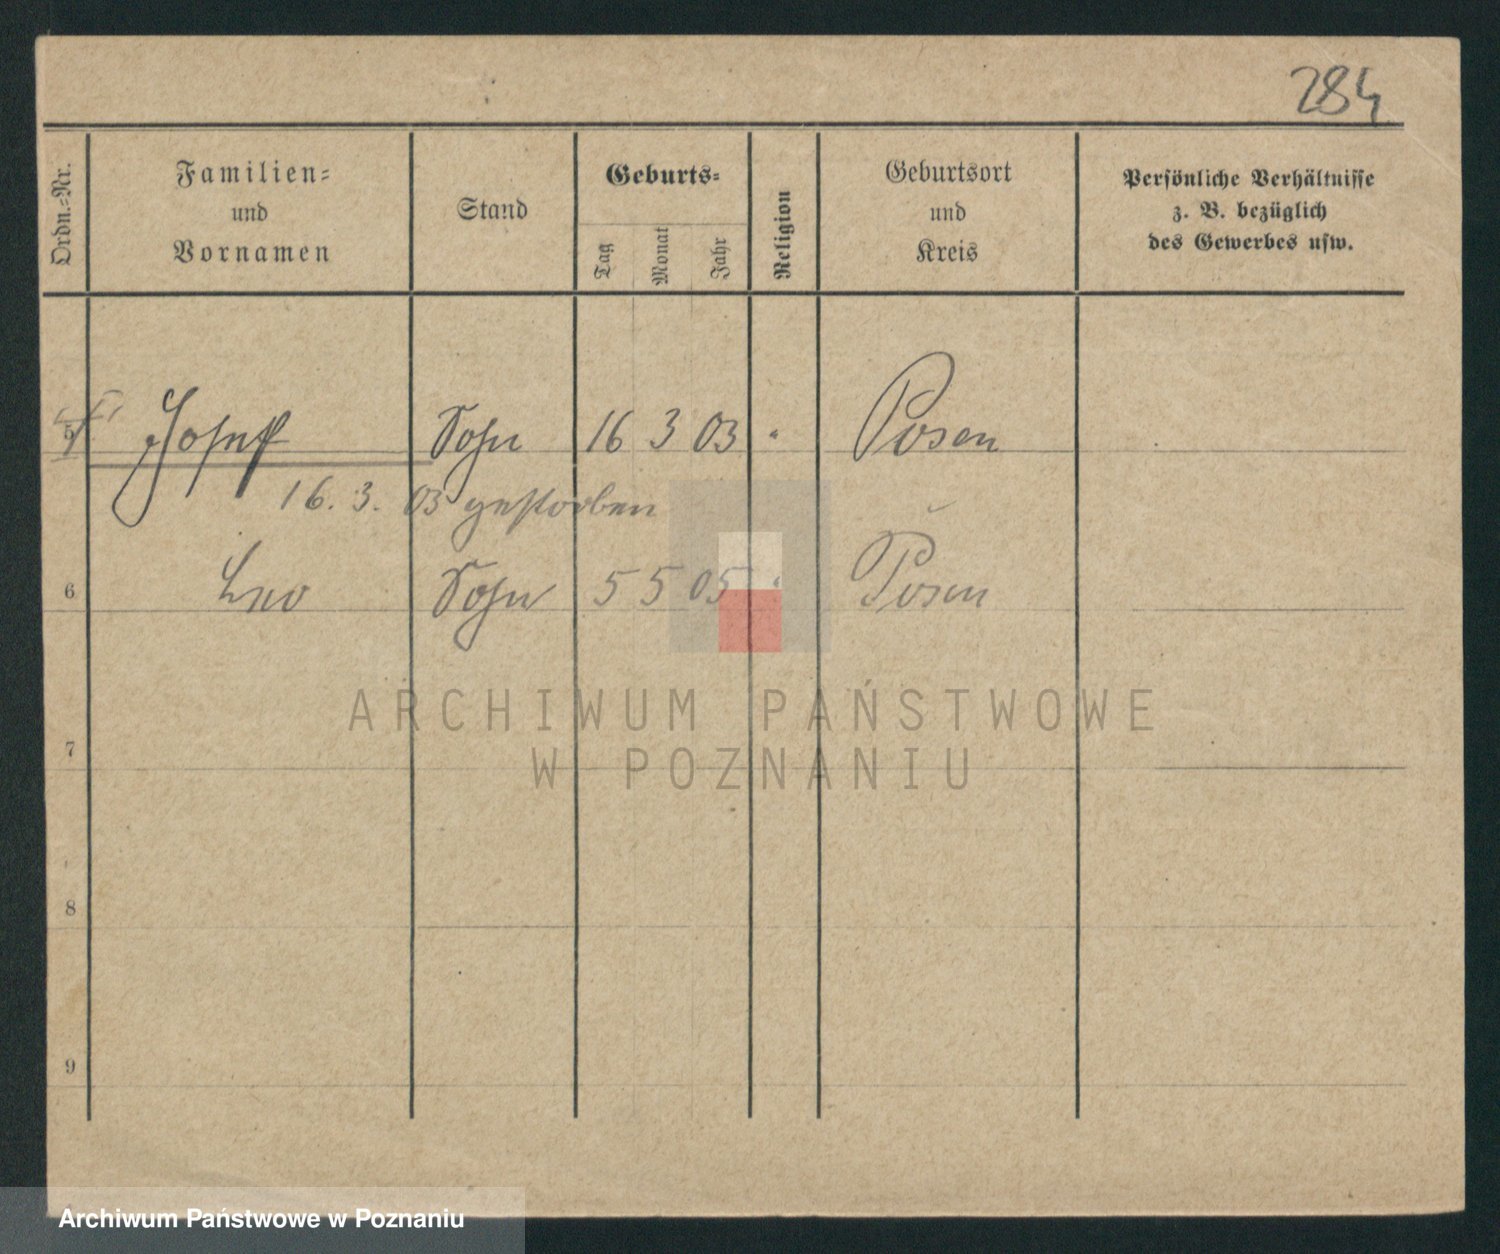 284
Ordn.=Nr. Familien= und Vornamen Stand Geburts= Tag Monat Jahr Religion Geburtsort und Kreis Persönliche Verhältnisse z. B. bezüglich des Gewerbes usw.
5 Josef Sohn 16 3 03 " Posen
16. 3. 03 gestorben
6 Leo Sohn 5 5 05 " Posen
ARCHIWUM PAŃSTWOWE
W POZNANIU
7
8
9
Archiwum Państwowe w Poznaniu